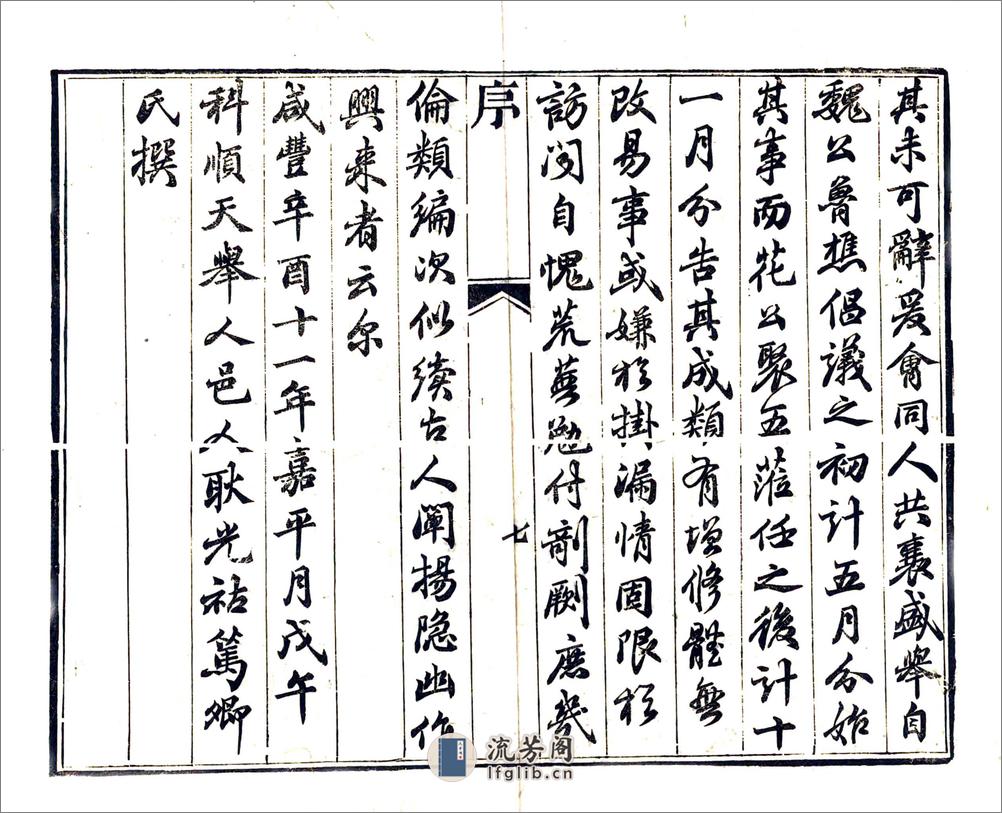 其未可辭爰會同人共襄盛舉自
魏公魯樵倡議之初計五月分始
其事而花公聚五蒞任之後計十
一月分告其成類有增修體無
改易事或嫌於掛漏情固限於
訪聞自愧荒蕪勉付剞劂庶幾
序
七
倫類編次似續古人闡揚隐幽作
興来者云尔
咸豐辛酉十一年嘉平月戊午
科順天舉人邑人耿光祜篤卿
氏撰
流芳阁
lfglib.cn